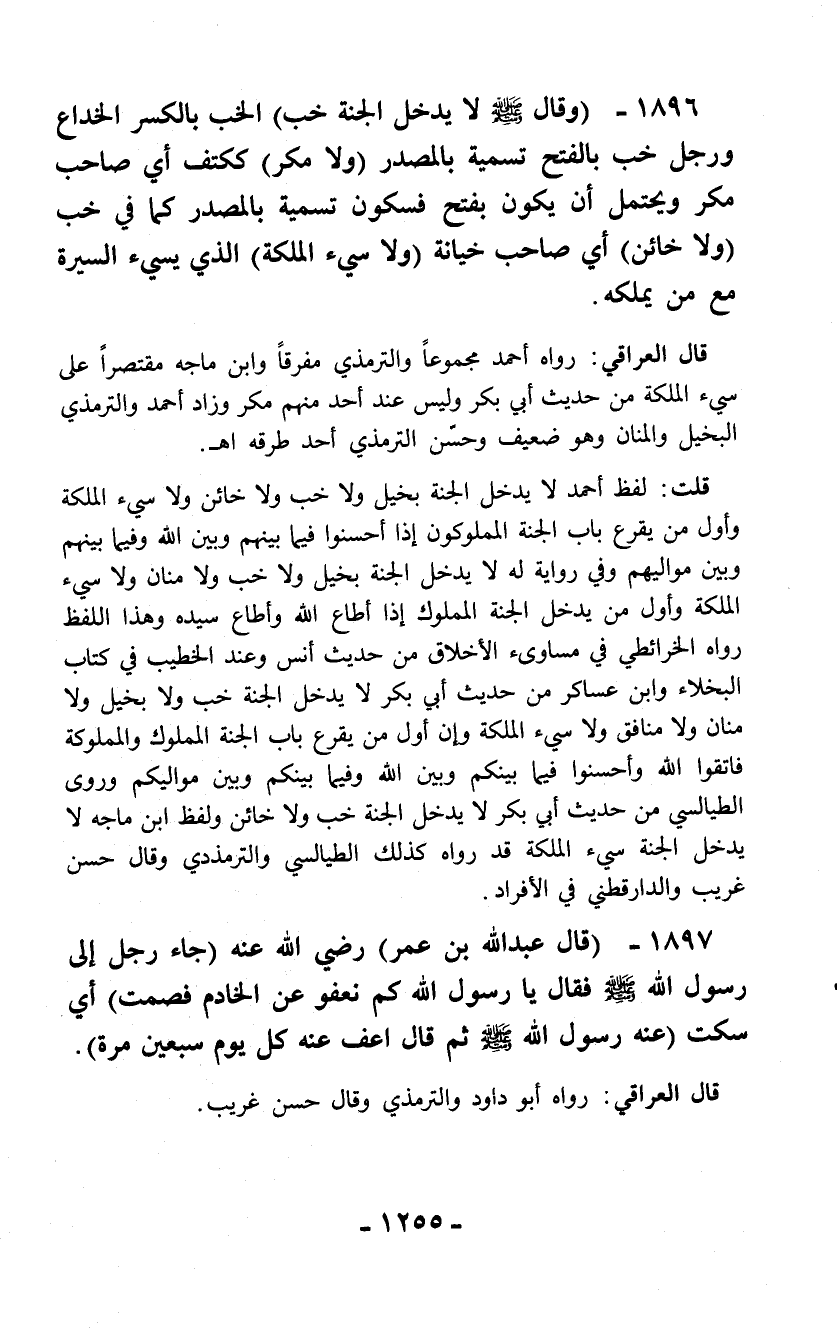 ١٨٩٦ - (وقال ﷺ لا يدخل الجنة خب) الخب بالكسر الخداع
ورجل خب بالفتح تسمية بالمصدر (ولا مكر) ككتف أي صاحب
مكر ويحتمل أن يكون بفتح فسكون تسمية بالمصدر كما في خب
(ولا خائن) أي صاحب خيانة (ولا سيء الملكة) الذي يسيء السيرة
مع من يملكه.
قال العراقي: رواه أحمد مجموعاً والترمذي مفرقاً وابن ماجه مقتصراً على
سيء الملكة من حديث أبي بكر وليس عند أحد منهم مكر وزاد أحمد والترمذي
البخيل والمنان وهو ضعيف وحسّن الترمذي أحد طرقه اهـ.
قلت: لفظ أحمد لا يدخل الجنة بخيل ولا خب ولا خائن ولا سيء الملكة
وأول من يقرع باب الجنة المملوكون إذا أحسنوا فيما بينهم وبين الله وفيما بينهم
وبين مواليهم وفي رواية له لا يدخل الجنة بخيل ولا خب ولا منان ولا سيء
الملكة وأول من يدخل الجنة المملوك إذا أطاع الله وأطاع سيده وهذا اللفظ
رواه الخرائطي في مساوىء الأخلاق من حديث أنس وعند الخطيب في كتاب
البخلاء وابن عساكر من حديث أبي بكر لا يدخل الجنة خب ولا بخيل ولا
منان ولا منافق ولا سيء الملكة وإن أول من يقرع باب الجنة المملوك والمملوكة
فاتقوا الله وأحسنوا فيما بينكم وبين الله وفيما بينكم وبين مواليكم وروى
الطيالسي من حديث أبي بكر لا يدخل الجنة خب ولا خائن ولفظ ابن ماجه لا
يدخل الجنة سيء الملكة قد رواه كذلك الطيالسي والترمذدي وقال حسن
غريب والدارقطني في الأفراد.
١٨٩٧ - (قال عبدالله بن عمر) رضي الله عنه (جاء رجل إلى
رسول الله ﷺ فقال يا رسول الله كم نعفو عن الخادم فصمت) أي
سكت (عنه رسول الله ﷺ ثم قال اعف عنه كل يوم سبعين مرة).
قال العراقي: رواه أبو داود والترمذي وقال حسن غريب.
- ١٢٥٥ -